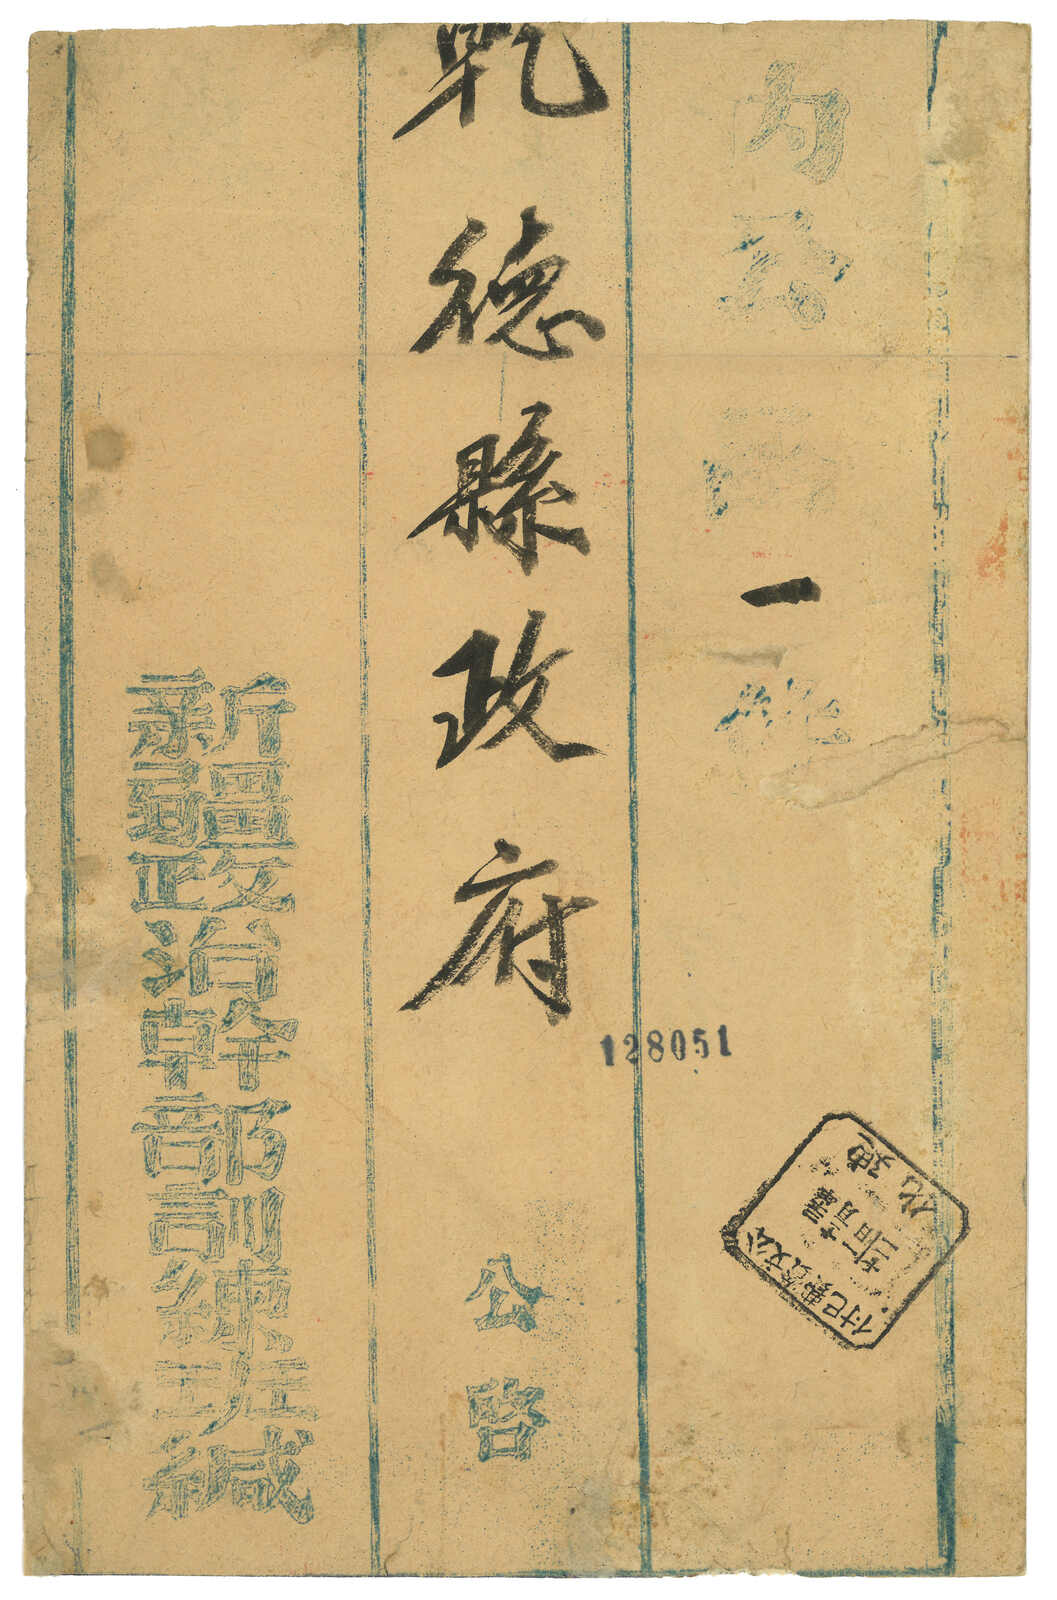 內公函一件
乾德縣政府
公啓
新疆政治幹部訓練班緘
128051
迪化